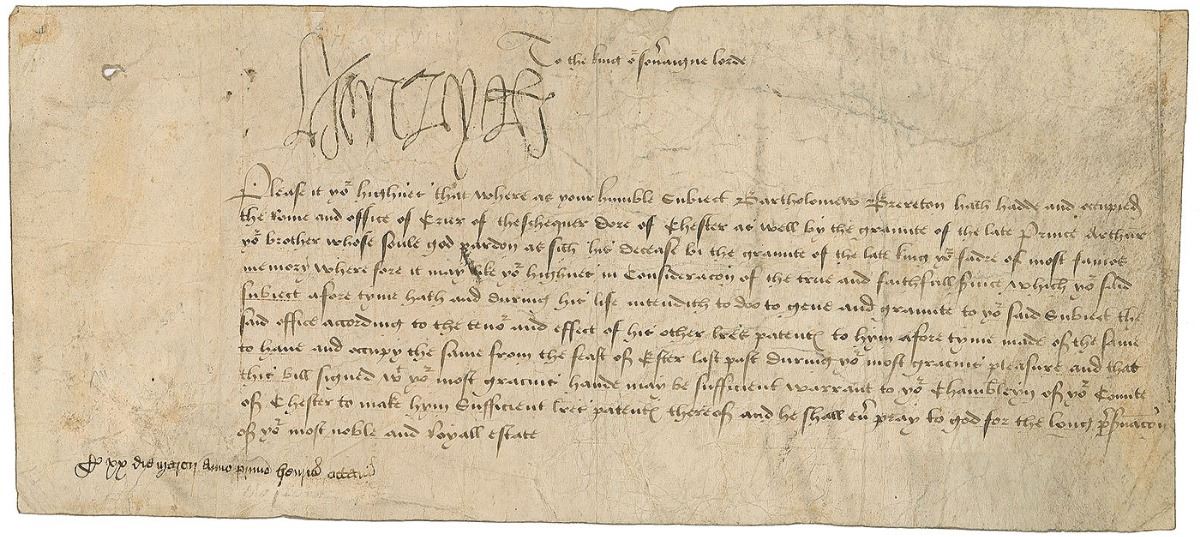 To the king oʳ soveraigne lorde
Henry R
Please it yoʳ highnes that where as your humble Subiect Bartholomew Brereton hath hadde and occupied
the Rome and office of Crier of theschequer dore of Chester as well by the graunte of the late Prince Arthur
yoʳ brother whose soule god pardon as sith his decease bi the graunte of the late king yoʳ fadre of most famos
memory where fore it may like yoʳ highnes in Consideracon of the true and faithfull service which yoʳ said
subiect afore tyme hath and during his life intendith to doo to geve and graunte to yoʳ said Subiect the
said office according to the tenoʳ and effect of his other lres patent to hym afore tyme made of the same
to have and occupy the same from the feast of Ester last past during yoʳ most gracius pleasure and that
this bill signed wᵗ yoʳ most gracius hande may be sufficient warrant to yoʳ Chambleyn of yoʳ Comite
of Chester to make hym Sufficient lres patent thereof and he shall ev pray to god for the long pservacon
of yoʳ most noble and Royall estate
xx die anno primo henrici octavi